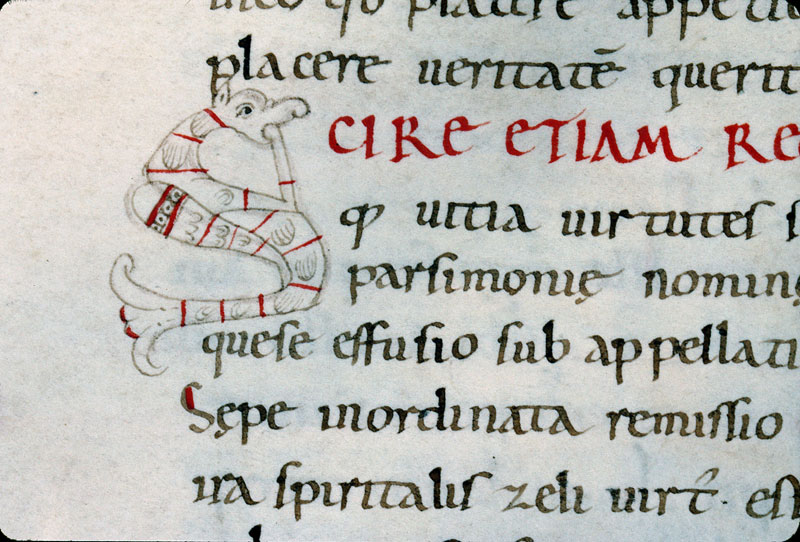 placere ueritatē querit
SCIRE ETIAM RE
qđ uitia uirtutes s
parsimonię nominę
quese effusio sub appellati
Sępe inordinata remissio
ura spiritalis zeli uirt̄. ess